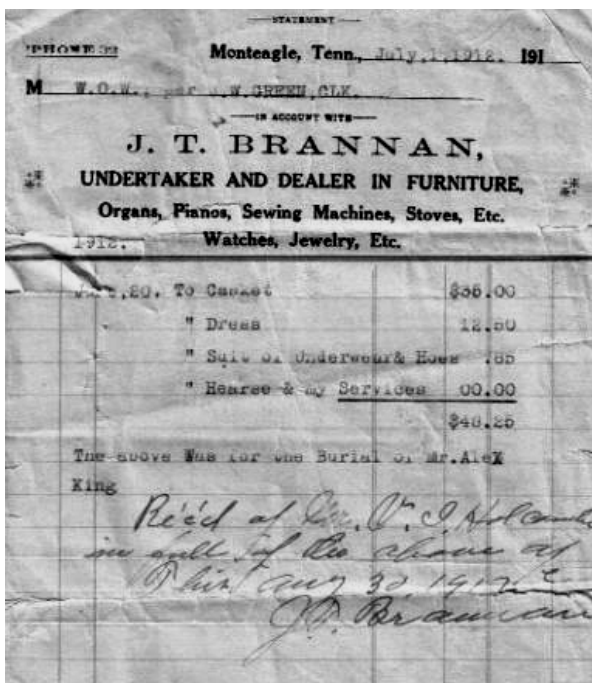 STATEMENT
'PHONE 32 Monteagle, Tenn., July,1,1912. 191
M W.O.W., per J.W.GREEN,CLK.
IN ACCOUNT WITH
J. T. BRANNAN,
UNDERTAKER AND DEALER IN FURNITURE,
Organs, Pianos, Sewing Machines, Stoves, Etc.
1912. Watches, Jewelry, Etc.
20. To Casket $35.00
" Dress 12.50
" Suit of Underwear& Hoes .85
" Hearse & my Services 00.00
$48.25
The above Was for the Burial of Mr.AleX
King
Rec'd of V. I. Holcomb
in full of the above at
This aug 30, 1912
J.T. Brannan